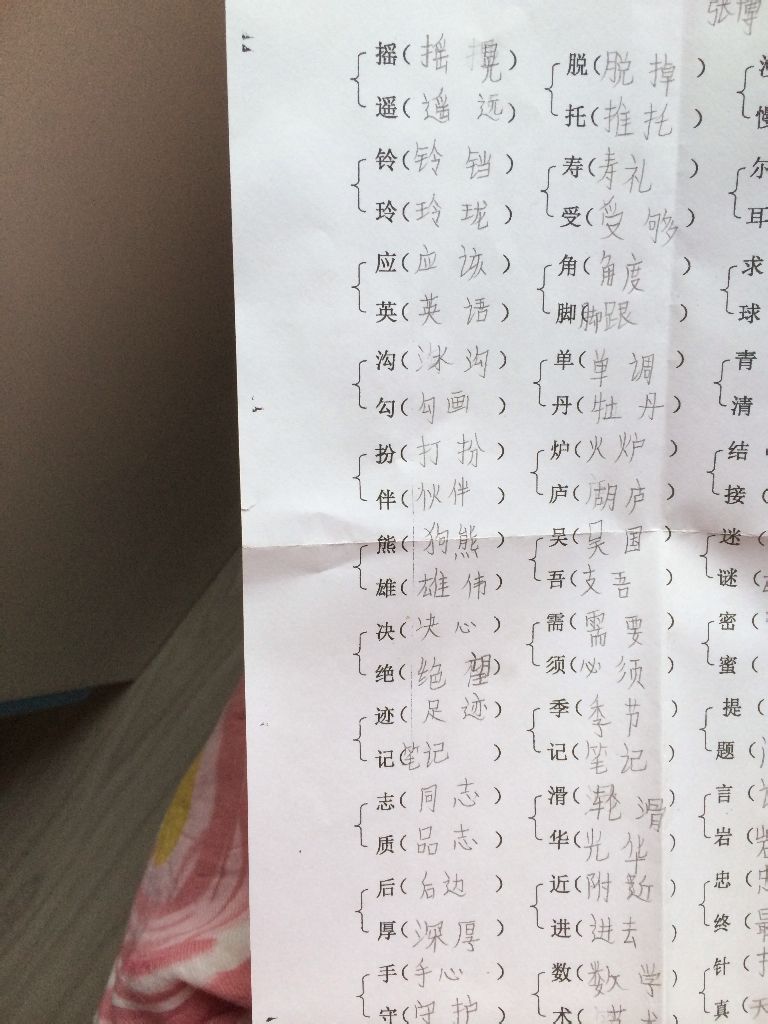 张博
摇(摇 晃) 脱(脱 掉)
遥(遥 远) 托(推托) 慢
铃(铃 铛) 寿(寿礼) 尔
玲(玲 珑) 受(受 够) 耳
应(应 该) 角(角度) 求
英(英 语) 脚(脚跟) 球
沟( 沟) 单(单 调) 青
勾(勾画) 丹(牡 丹) 清
扮(打 扮) 炉(火 炉) 结
伴(伙伴) 庐( 庐) 接(
熊(狗熊) 吴(吴 国) 迷(
雄(雄 伟) 吾(支吾) 谜(
决(决 心) 需(需 要) 密(
绝(绝 望) 须(必 须) 蜜(
迹(足 迹) 季(季 节) 提(
记(笔记) 记(笔 记) 题(
志(同 志) 滑(轮 滑) 言(
质(品 志) 华(光 华) 岩(岩
后(后边) 近(附 近) 忠(忠
厚(深厚) 进(进去) 终(最
手(手心) 数(数 学) 针(
守(守 护) 术( 术 真(天